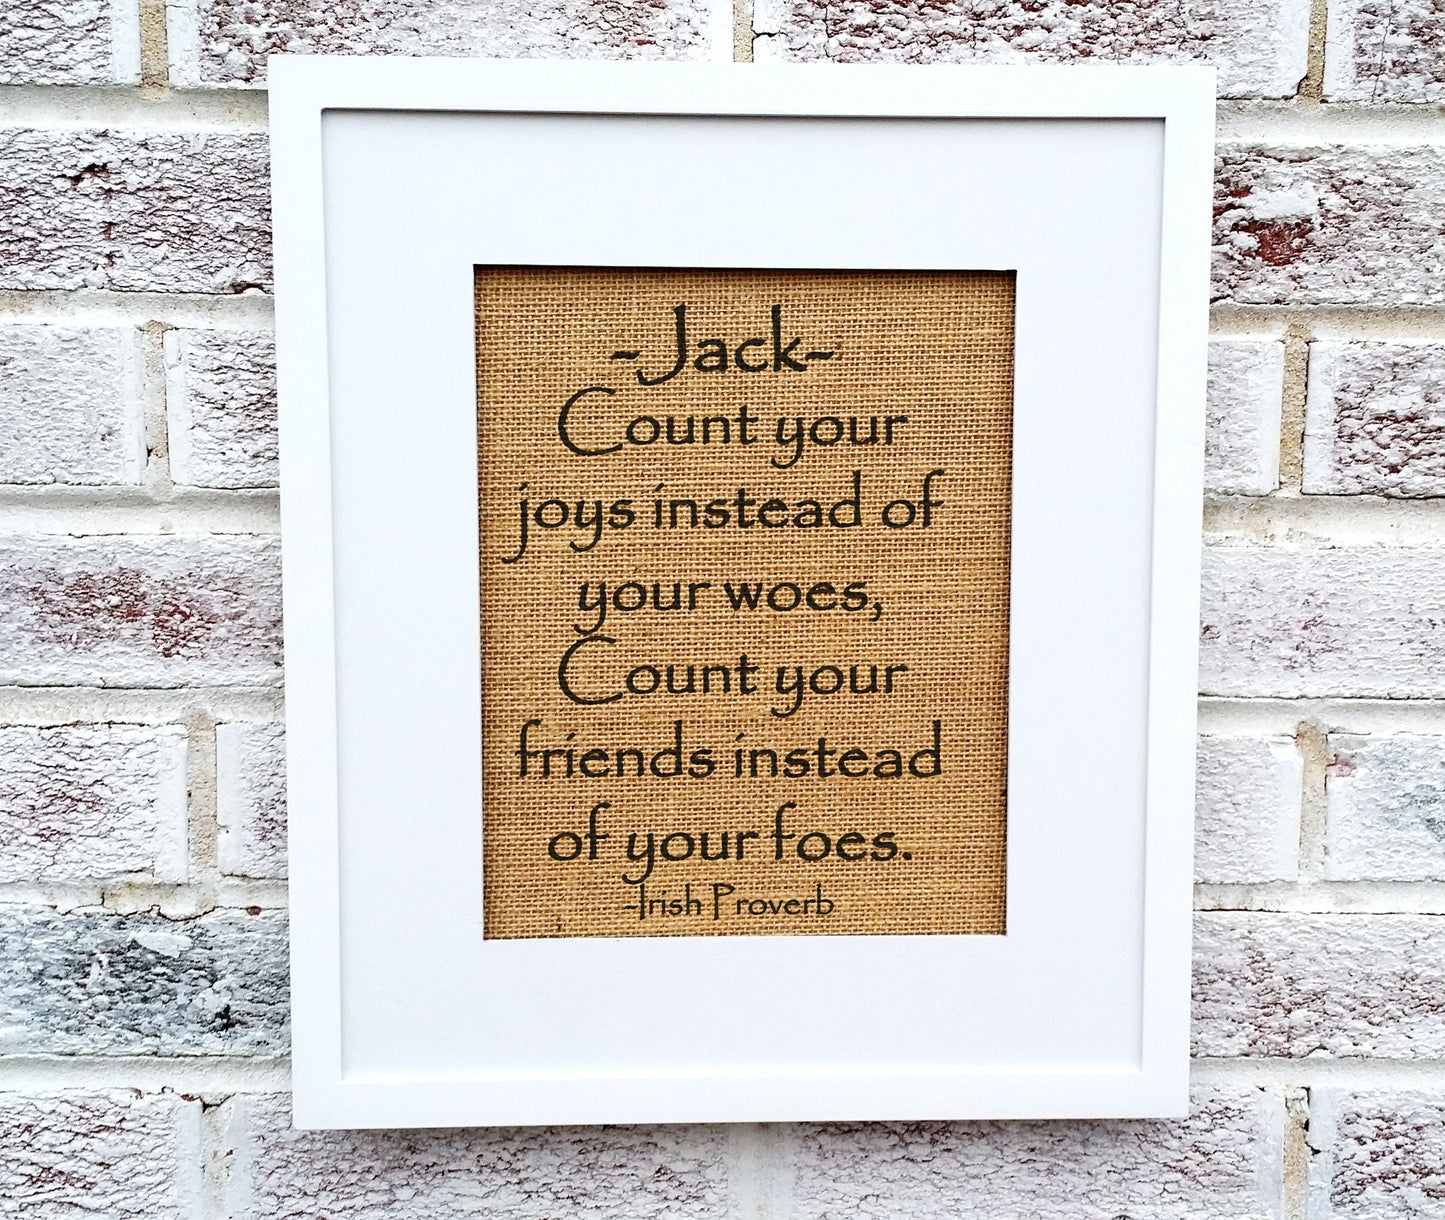 -Jack-
Count your
joys instead of
your woes,
Count your
friends instead
of your foes.
-Irish Proverb